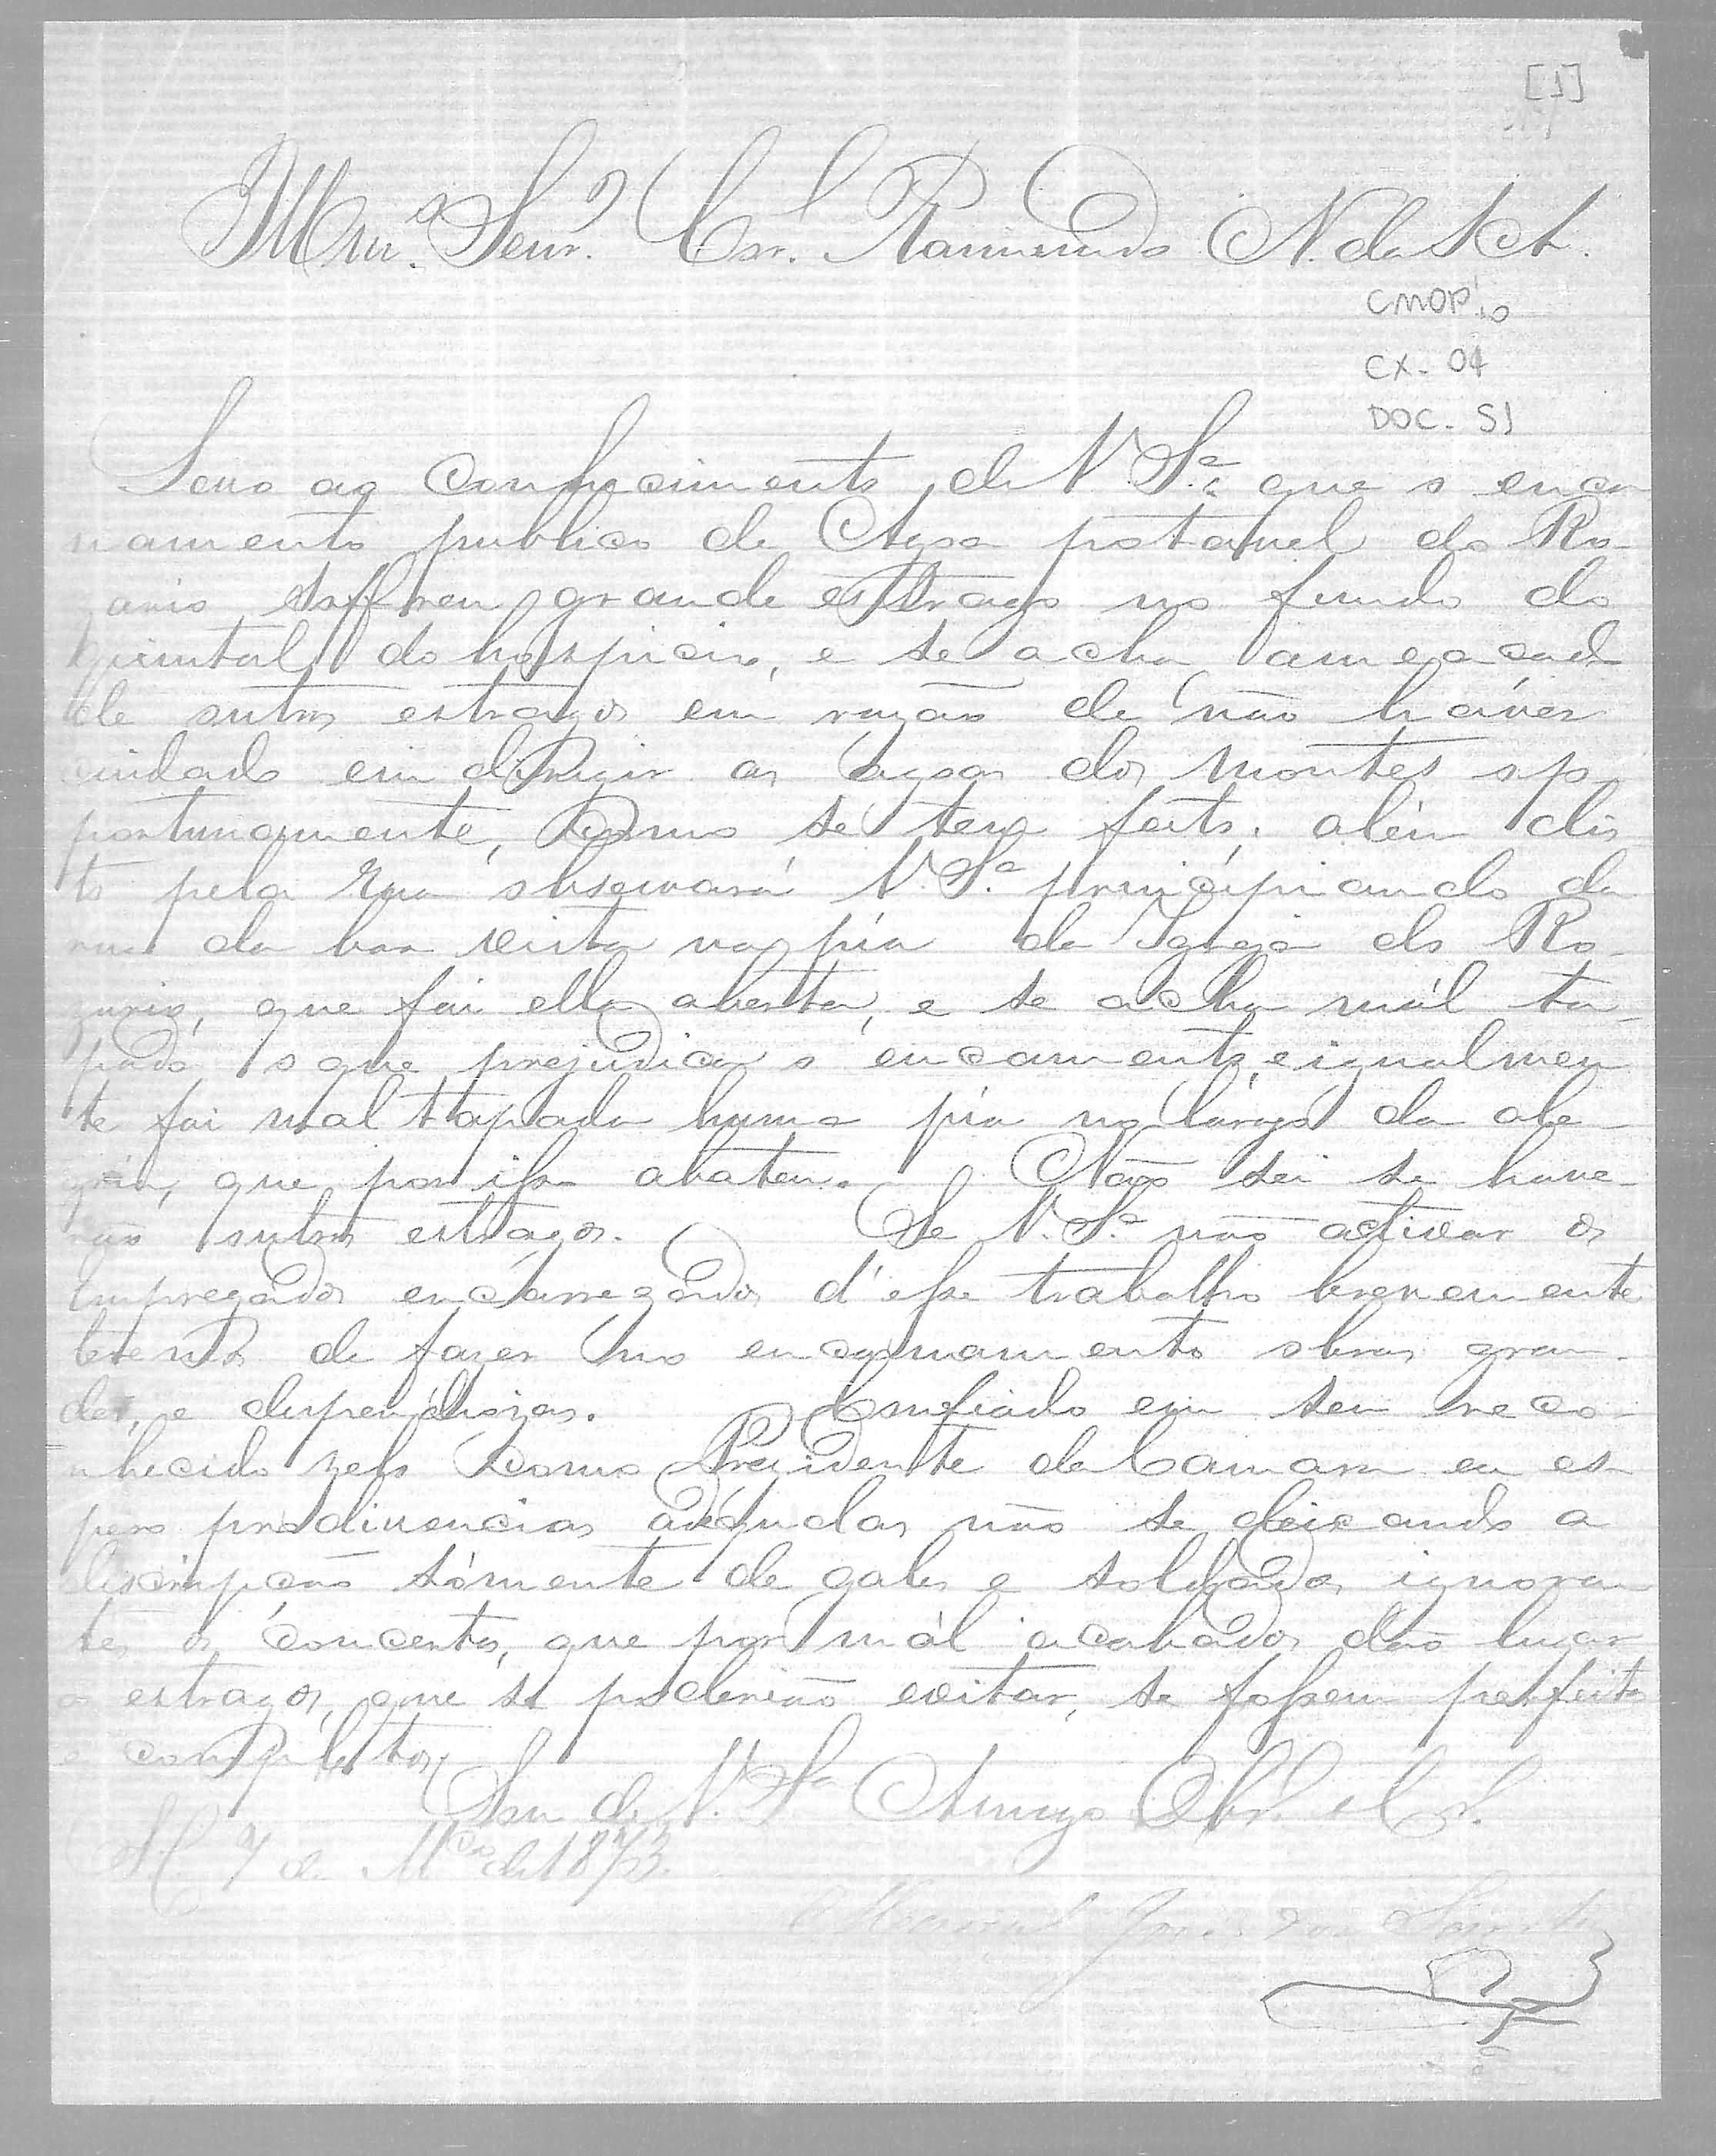 [1]
Illm.º Senr. Cor. Raimundo N. da S. A.
CMOP
CX- 04
DOC- 51
Levo ao conhecimento de V. S.ª que o enca
namento publico de Agoa potavel do Ro-
zario soffreu grande estrago no fundo do
quintal do hospicio, e se acha ameaçado
de outros estragos em razão de não haver
cuidado em dirigir as agoas dos montes op
portunamente, como se tem feito; alèm dis
to pela rua observará V. S.ª principiando da
rua da boa vista na pia da Igreja do Ro-
zario, que foi ella aberta, e se acha mál ta-
pado o que prejudica o encamento, e igualmen
te foi mal tapada huma pia no largo da ale-
gria, que por isso abateu. Não sei se have-
rão outros estragos. Se V. S.ª não activar os
empregados encarregados d'esse trabalho brevemente
teremos de fazer no encanamento obras gran-
des, e dispendiozas. Confiado em seu reco-
nhecido zelo como Prezidente da Camara eu es
pero providencias adequadas não se deixando a
discripção sómente de gales e soldados ignoran
tes os concertos, que por mál acabados dão lugar
a estragos, que se poderião evitar, se fossem perfeitos
e completos.
Sou de V. S.ª Amigo Obr.º e Cr.
7 de M.ço de 1873.
Manoel José dos Santos